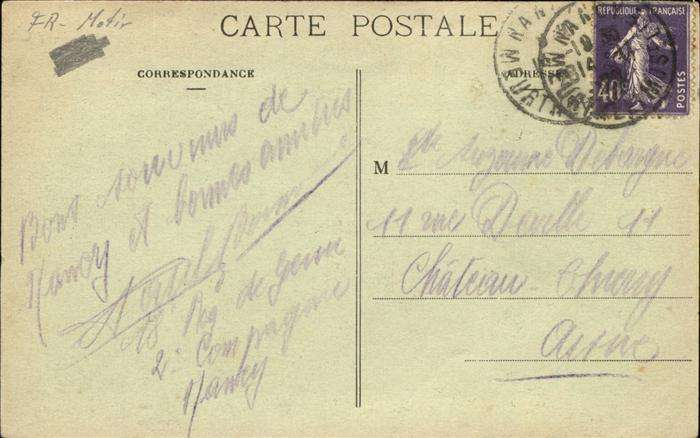 FR- Motiv
CARTE POSTALE
CORRESPONDANCE
ADRESSE
RÉPUBLIQUE FRANÇAISE
40c
POSTES
Bons souvenirs de
Nancy et bonnes amitiés
18 Reg de Genie
2e Compagnie
Nancy
M lle Suzanne
11 rue 11
Château-Thierry
Aisne